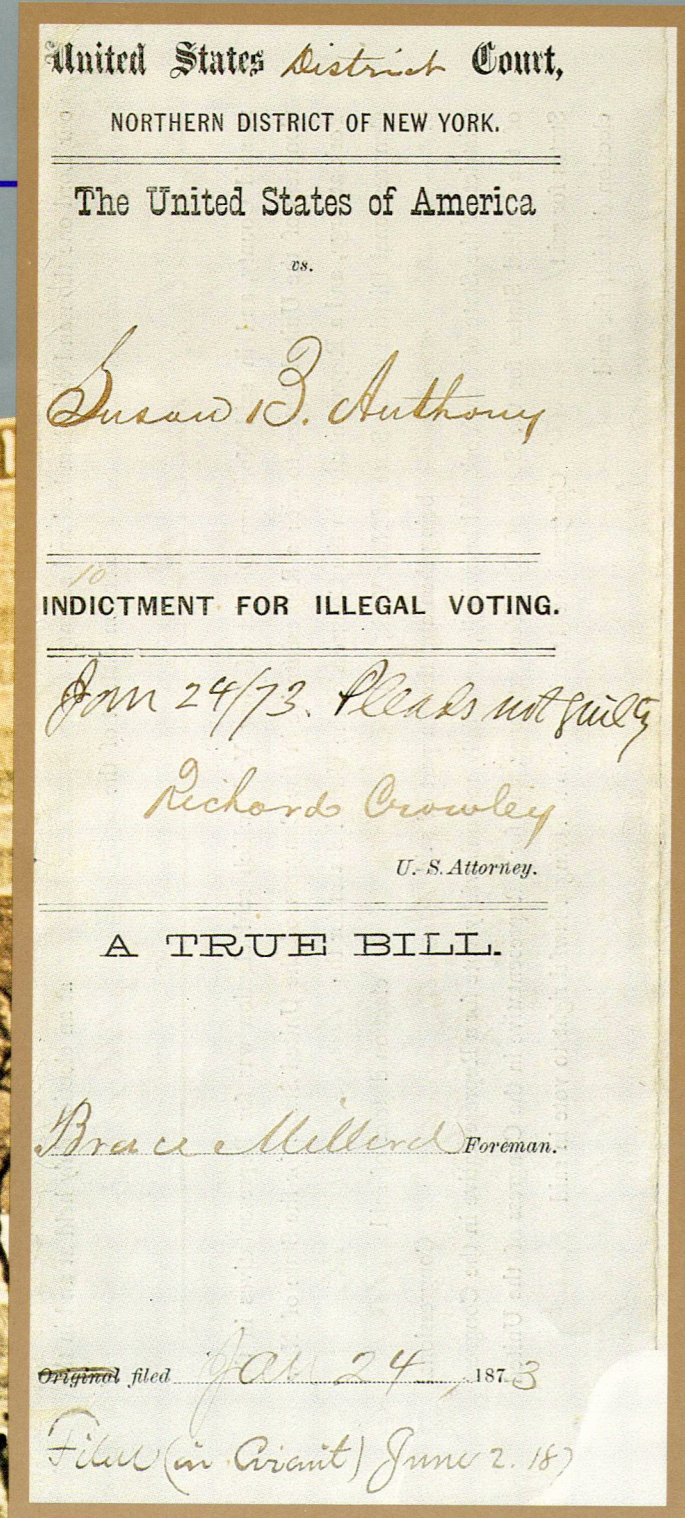 United States District Court,
NORTHERN DISTRICT OF NEW YORK.
The United States of America
vs.
Susan B. Anthony
10
INDICTMENT FOR ILLEGAL VOTING.
Jan 24/73. Pleads not guilty
Richard Crowley
U. S. Attorney.
A TRUE BILL.
Brace Millerd Foreman.
Original filed Jan 24, 1873
Filed (in Circuit) June 2. 187